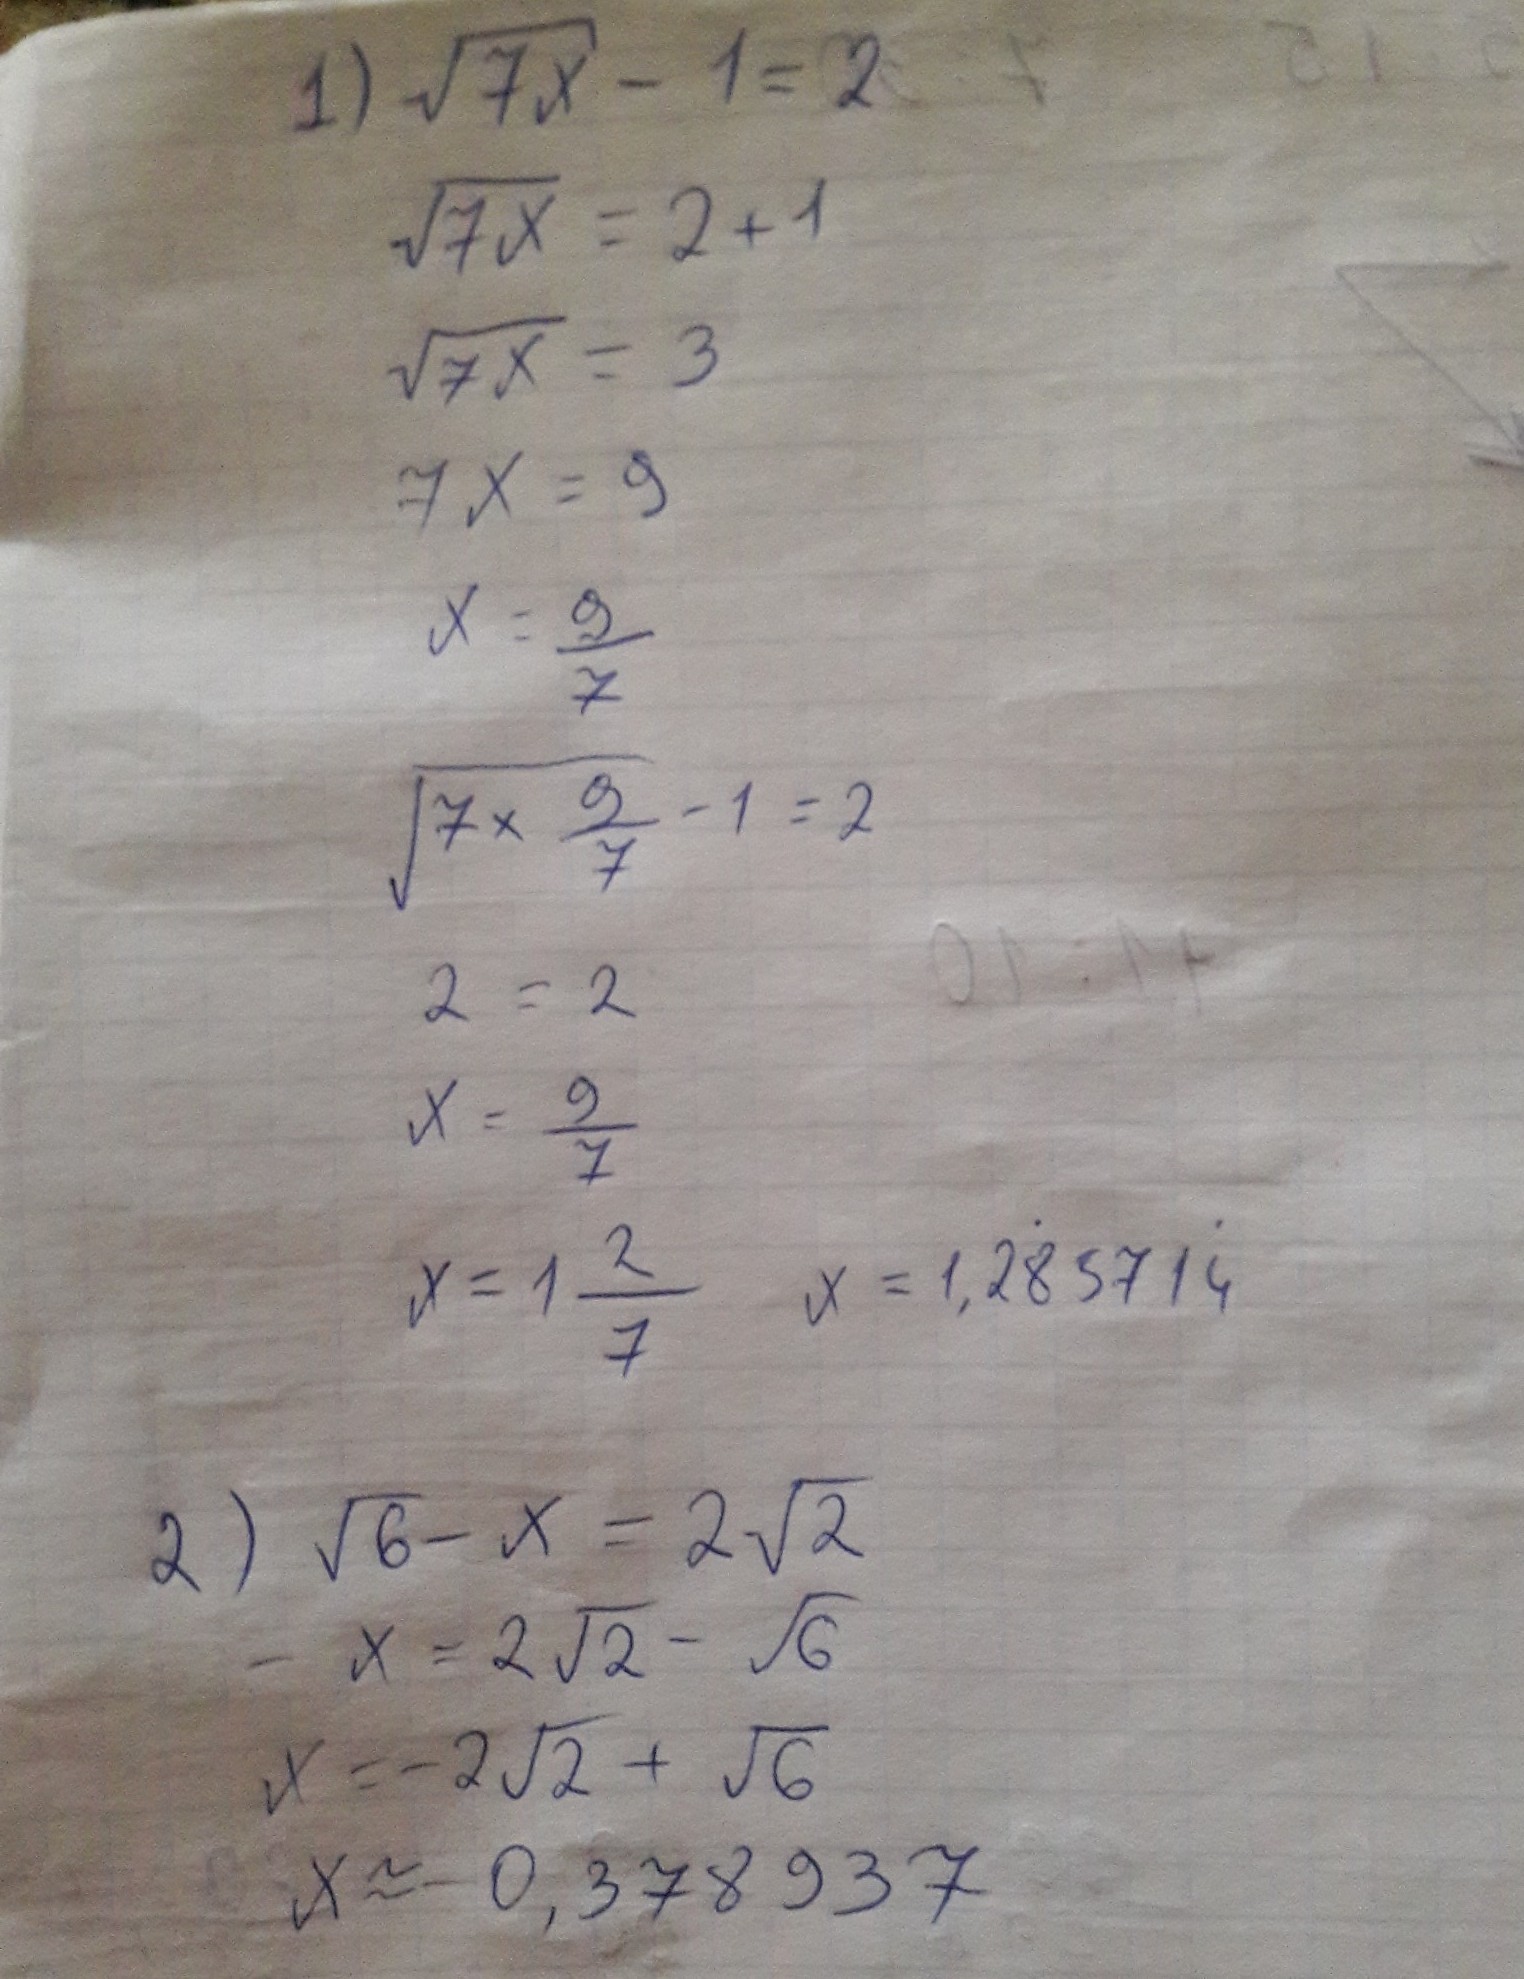 1) √7x - 1 = 2
√7x = 2 + 1
√7x = 3
7x = 9
x = 9/7
√7 × 9/7 - 1 = 2
2 = 2
x = 9/7
x = 1 2/7 x = 1,2̇85714̇
2) √6 - x = 2√2
- x = 2√2 - √6
x = -2√2 + √6
x ≈ - 0,378937